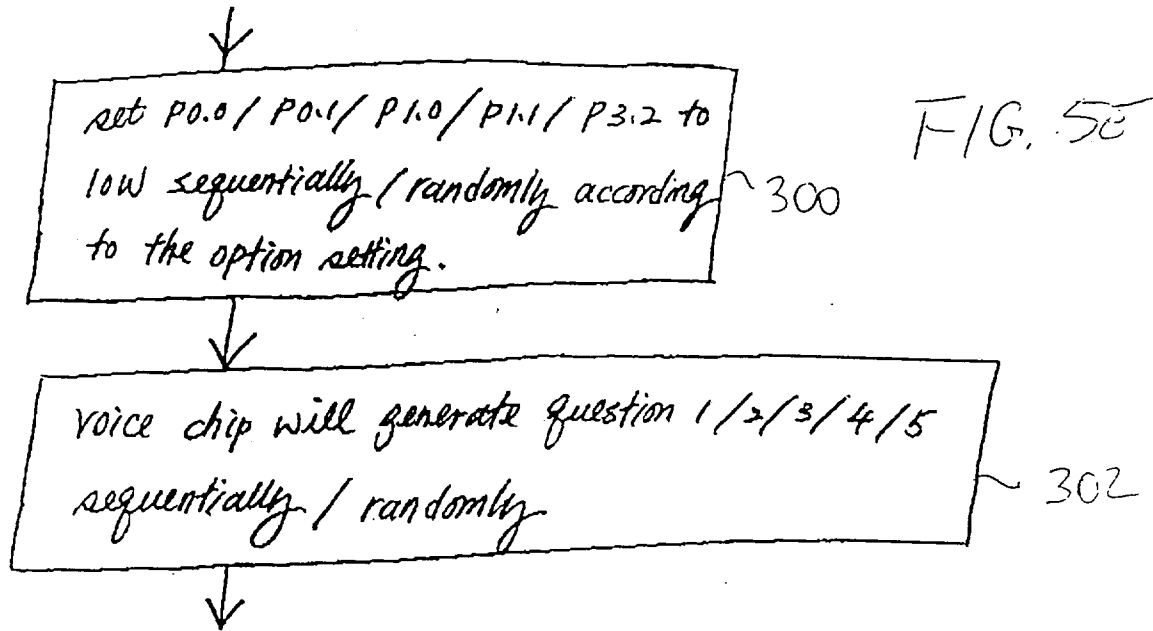 set P0.0/ P0.1/ P1.0/ P1.1/ P3.2 to
low sequentially / randomly according
to the option setting.
300
FIG. 5E
voice chip will generate question 1/2/3/4/5
sequentially / randomly
302